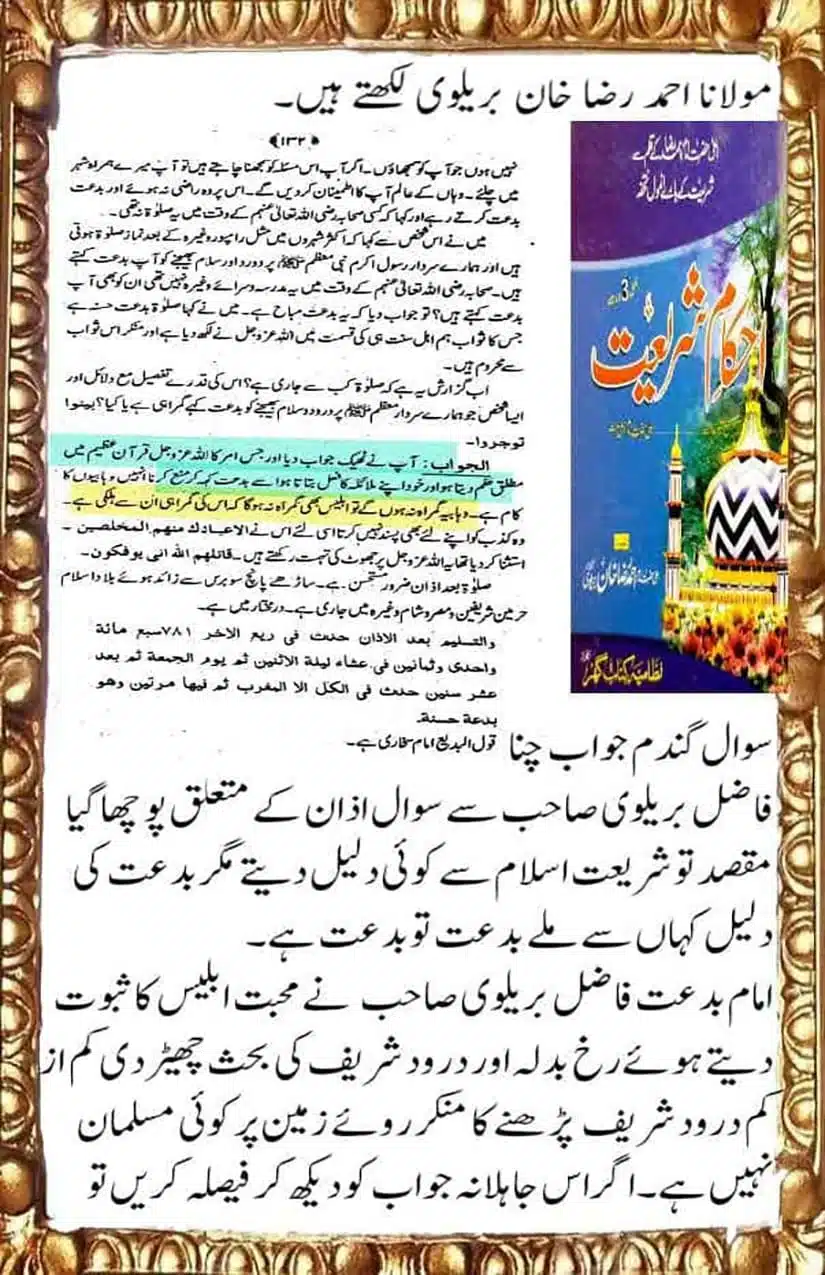 مولانا احمد رضا خان بریلوی لکھتے ہیں۔
﴿۱۳۲﴾
نہیں ہوں جو آپ کو سمجھاؤں۔ اگر آپ اس مسئلہ کو سمجھنا چاہتے ہیں تو آپ میرے ہمراہ شہر
میں چلئے۔ وہاں کے عالم آپ کا اطمینان کردیں گے۔ اس پر وہ راضی نہ ہوئے اور بدعت
بدعت کرتے رہے اور کہا کہ کسی صحابہ رضی اللہ تعالیٰ عنہم کے وقت میں یہ صلوٰۃ نہ تھی۔
میں نے اس شخص سے کہا کہ اکثر شہروں میں مثل رامپور وغیرہ کے بعد نماز صلوٰۃ ہوتی
ہیں اور ہمارے سردار رسول اکرم نبی معظم ﷺ پر درود اور سلام بھیجنے کو آپ بدعت کہتے
ہیں۔ صحابہ رضی اللہ تعالیٰ عنہم کے وقت میں یہ مدرسہ وسرائے وغیرہ نہیں تھی ان کو بھی آپ
بدعت کہتے ہیں؟ تو جواب دیا کہ یہ بدعت مباح ہے۔ میں نے کہا صلوٰۃ بدعت حسنہ ہے
جس کا ثواب ہم اہل سنت ہی کی قسمت میں اللہ عزوجل نے لکھ دیا ہے اور منکر اس ثواب
سے محروم ہیں۔
اب گزارش یہ ہے کہ صلوٰۃ کب سے جاری ہے؟ اس کی قدرے تفصیل مع دلائل اور
ایسا شخص جو ہمارے سردار معظم ﷺ پر درود وسلام بھیجنے کو بدعت کہے گمراہی ہے یا کیا؟ بینوا
توجروا۔
الجواب: آپ نے ٹھیک جواب دیا اور جس امر کا اللہ عزوجل قرآن عظیم میں
مطلق حکم دیتا ہو اور خود اپنے ملائکہ کا فعل بتاتا ہو اسے بدعت کہہ کر منع کرنا انہیں وہابیوں کا
کام ہے۔ وہابیہ گمراہ نہ ہوں گے تو ابلیس بھی گمراہ نہ ہوگا کہ اس کی گمراہی ان سے ہلکی ہے۔
وہ کذب کو اپنے لئے بھی پسند نہیں کرتا اسی لئے اس نے الاعبادک منھم المخلصین۔
استثنا کردیا تھا یہ اللہ عزوجل پر جھوٹ کی تہمت رکھتے ہیں۔ قاتلھم اللہ انی یوفکون۔
صلوٰۃ بعد اذان ضرور مستحسن ہے۔ ساڑھے پانچ سو برس سے زائد ہوئے بلاد اسلام
حرمین شریفین ومصر وشام وغیرہ میں جاری ہے۔ درمختار میں ہے۔
والتسلیم بعد الاذان حدث فی ربیع الاخر ۷۸۱ سبع مائة
واحدی وثمانین فی عشاء لیلة الاثنین ثم یوم الجمعة ثم بعد
عشر سنین حدث فی الکل الا المغرب ثم فیھا مرتین وھو
بدعة حسنة۔
قول البدیع امام سخاوی ہے۔
شریعت کے بارے انمول تحفہ
احکام شریعت
نظامیہ کتاب گھر
سوال گندم جواب چنا
فاضل بریلوی صاحب سے سوال اذان کے متعلق پوچھا گیا
مقصد تو شریعت اسلام سے کوئی دلیل دیتے مگر بدعت کی
دلیل کہاں سے ملے بدعت تو بدعت ہے۔
امام بدعت فاضل بریلوی صاحب نے محبت ابلیس کا ثبوت
دیتے ہوئے رخ بدلہ اور درود شریف کی بحث چھیڑ دی کم از
کم درود شریف پڑھنے کا منکر روئے زمین پر کوئی مسلمان
نہیں ہے۔ اگر اس جاہلانہ جواب کو دیکھ کر فیصلہ کریں تو